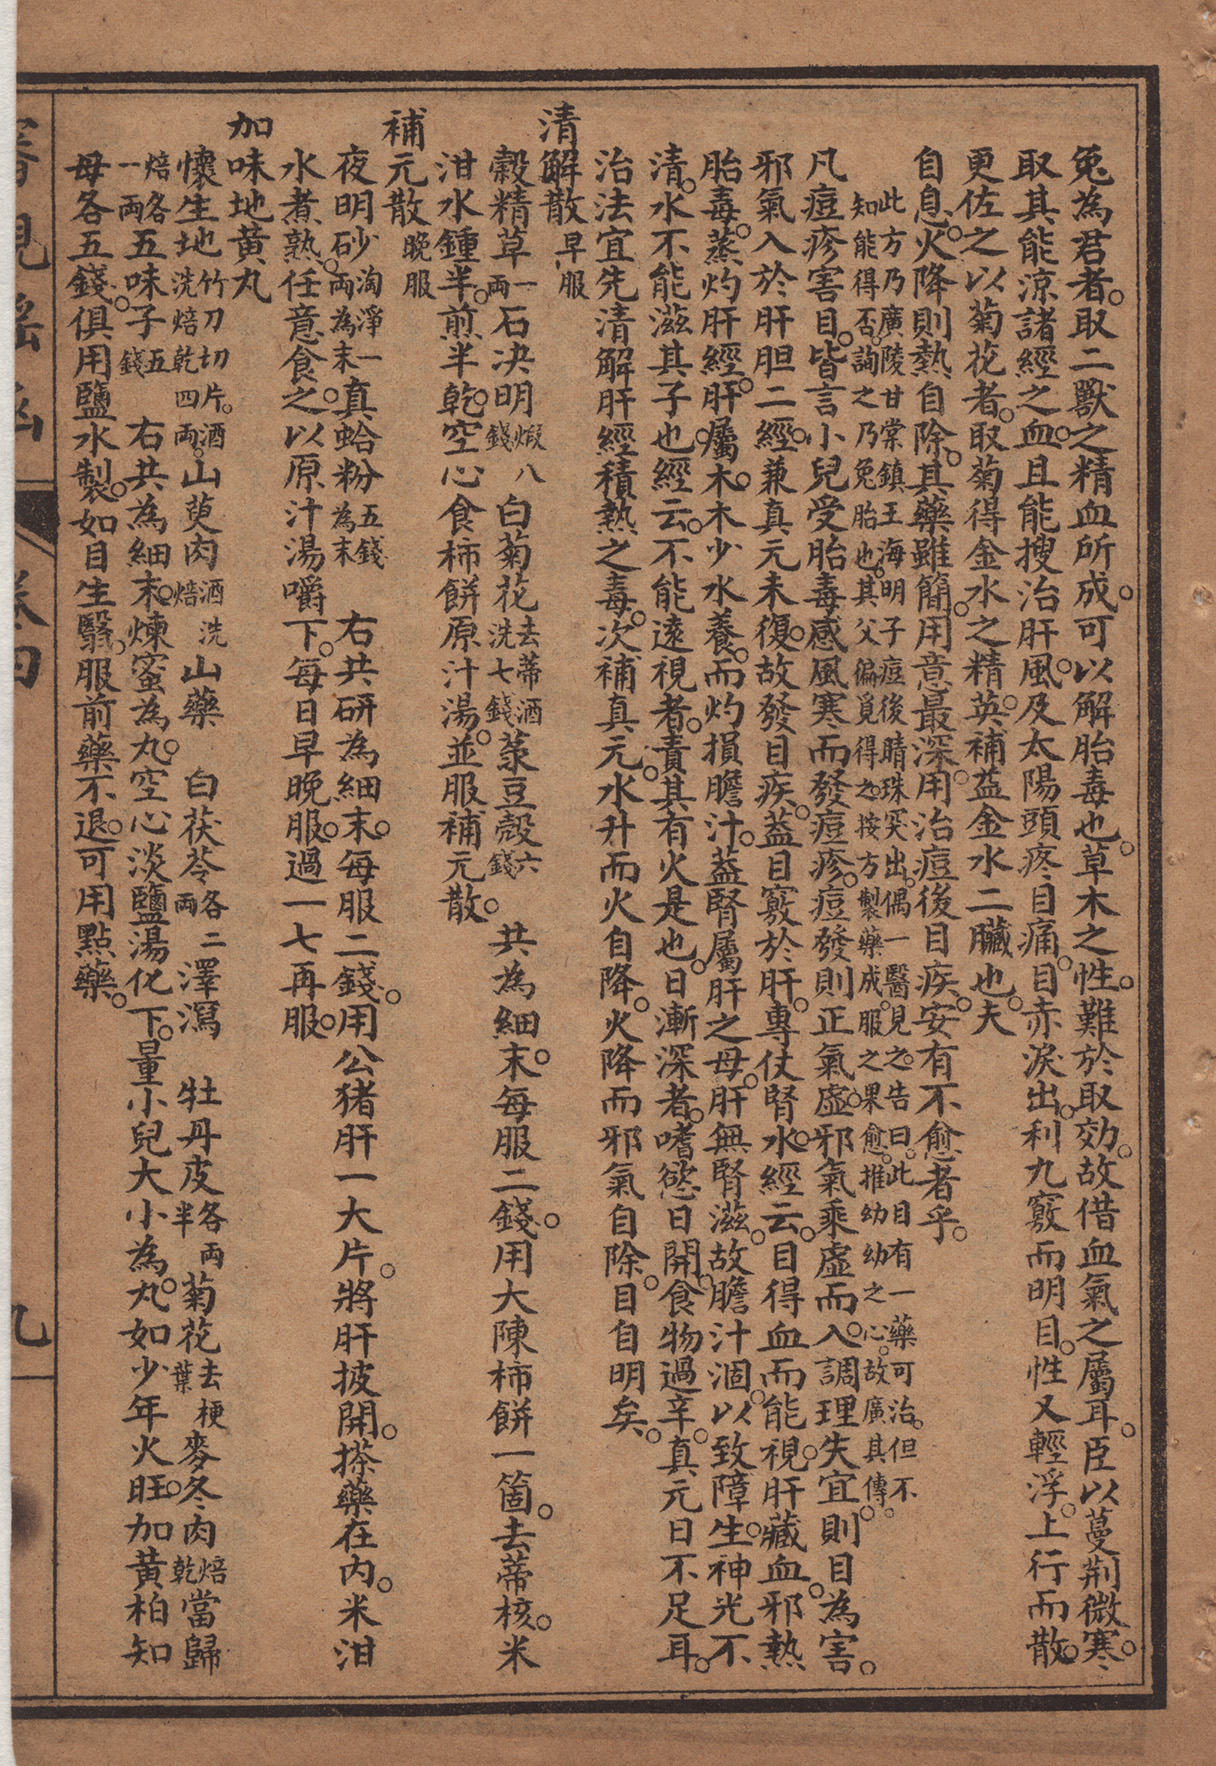 兔為君者。取二獸之精血所成。可以解胎毒也。草木之性。難於取効。故借血氣之屬耳。臣以蔓荆微寒。
取其能涼諸經之血。且能搜治肝風。及太陽頭疼。目痛。目赤淚出。利九竅而明目。性又輕浮。上行而散。
更佐之以菊花者。取菊得金水之精英。補益金水二臟也。夫
自息。火降則熱自除。其藥雖簡。用意最深。用治痘後目疾。安有不愈者乎。
此方乃廣陵甘棠鎮王海明子痘後睛珠突出。偶一醫見之。告曰。此目有一藥可治。但不
知能得否。詢之乃兔胎也。其父偏覓得之。按方製藥成。服之果愈。推幼幼之心。故廣其傳。
凡痘疹害目。皆言小兒受胎毒。感風寒而發痘疹。痘發則正氣虛。邪氣乘虛而入。調理失宜。則目為害。
邪氣入於肝胆二經。兼真元未復。故發目疾。蓋目竅於肝。專仗腎水。經云。目得血而能視。肝藏血。邪熱
胎毒。蒸灼肝經。肝屬木。木少水養。而灼損膽汁。蓋腎屬肝之母。肝無腎滋。故膽汁涸。以致障生。神光不
清。水不能滋其子也。經云。不能遠視者。責其有火是也。日漸深者。嗜慾日開。食物過辛。真元日不足耳。
治法宜先清解肝經積熱之毒。次補真元。水升而火自降。火降而邪氣自除。目自明矣。
清解散 早服
穀精草 一両 石决明 煅八錢 白菊花 去蒂酒洗七錢 菉豆殼 六錢。 共為細末。每服二錢。用大陳柿餅一箇。去蒂核。米
泔水鍾半。煎半乾。空心食柿餅原汁湯。並服補元散。
補元散 晚服
夜明砂 淘淨一両為末 真蛤粉 五錢為末 右共研為細末。每服二錢。用公猪肝一大片。將肝披開。搽藥在內。米泔
水煮熟。任意食之。以原汁湯嚼下。每日早晚服。過一七再服。
加味地黃丸
懷生地 竹刀切片。酒洗焙乾四両。 山萸肉 酒洗焙 山藥 白茯苓 各二両 澤瀉 牡丹皮 各両半 菊花 去梗葉 麥冬肉 焙乾 當歸
焙各一両 五味子 五錢 右共為細末。煉蜜為丸。空心淡鹽湯化下。量小兒大小為丸。如少年火旺。加黃柏知
母各五錢。俱用鹽水製。如目生翳。服前藥不退。可用點藥。
卷四
九